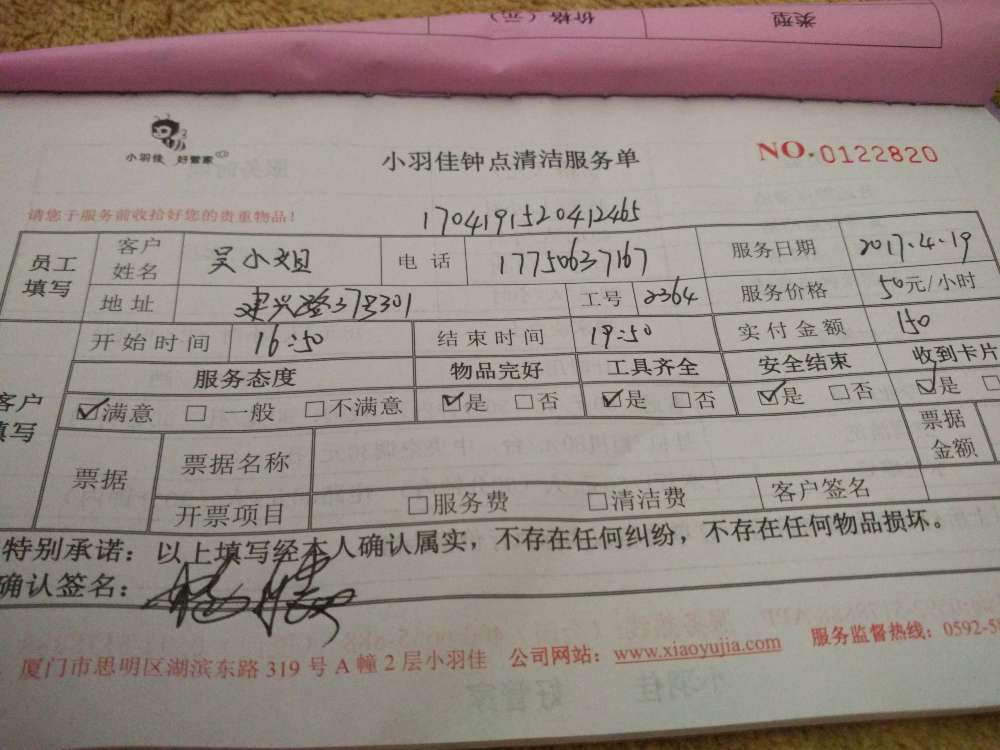 类型 价格（元）
小羽佳 好管家
小羽佳钟点清洁服务单
NO.0122820
请您于服务前收拾好您的贵重物品！
1704191520412465
员工填写 客户姓名 吴小姐 电话 17750637167 服务日期 2017.4.19
地址 建兴路37号301 工号 2364 服务价格 50元/小时
开始时间 16:50 结束时间 19:50 实付金额 150
客户填写 服务态度 物品完好 工具齐全 安全结束 收到卡片
☑满意 □一般 □不满意 ☑是 □否 ☑是 □否 ☑是 □否 ☑是 □
票据 票据名称 票据金额
开票项目 □服务费 □清洁费 客户签名
特别承诺：以上填写经本人确认属实，不存在任何纠纷，不存在任何物品损坏。
确认签名：
厦门市思明区湖滨东路319号A幢2层小羽佳 公司网站：www.xiaoyujia.com 服务监督热线：0592-5